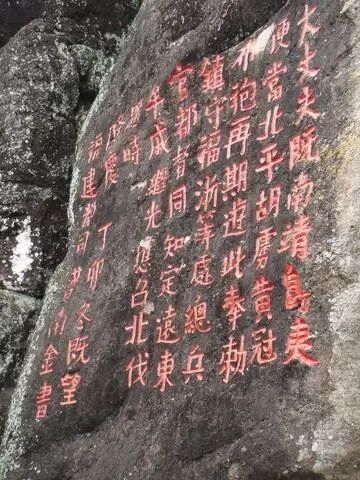 大丈夫既南靖島夷
便當北平胡虜黃冠
布袍再期遊此奉勅
鎮守福浙等處總兵
官都督同知定遠東
牟戚繼光應召北伐
時
隆慶丁卯冬既望
福建都司黃南金書